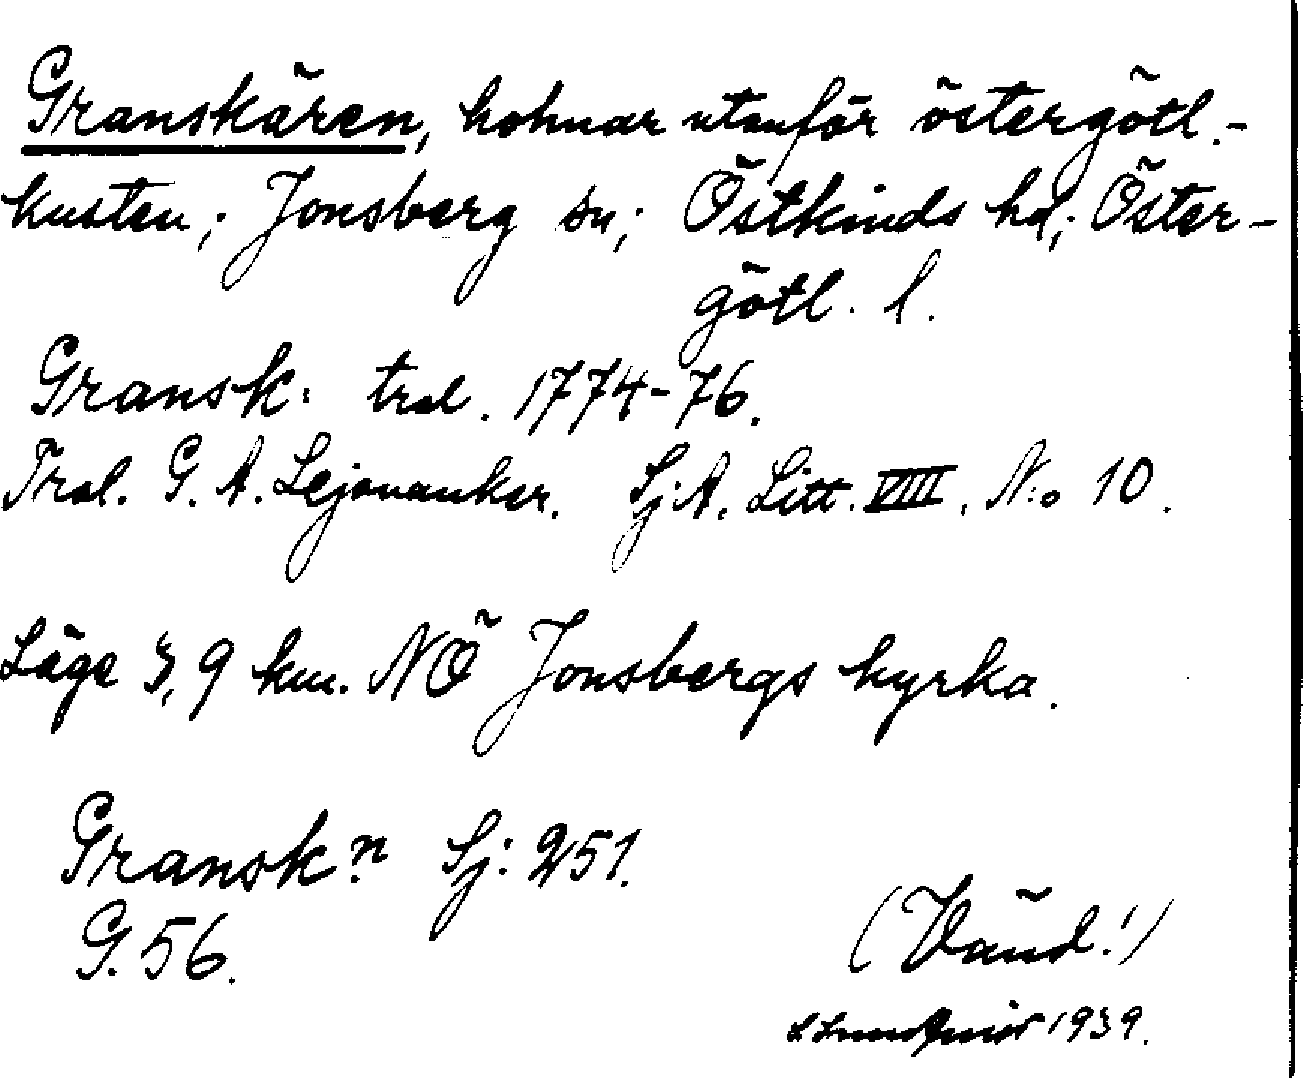 Granskären, holmar utanför östergötl.-
kusten; Jonsberg sn; Östkinds hd; Öster-
götl. l.
Gransk: tral. 1774-76.
Tral. G. A. Lejonanker. Sj:A. Litt. VIII. N:o 10.
Läge 3,9 km. NÖ Jonsbergs kyrka.
Gransk:n Sj: 251.
G. 56.
(Vänd!)
S Lundqvist 1939.